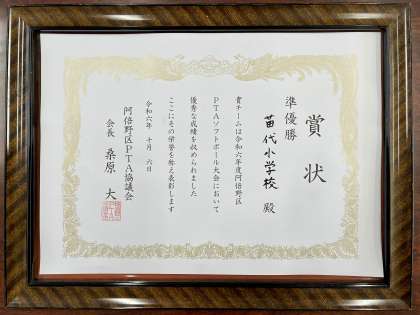 賞状
準優勝
苗代小学校 殿
貴チームは令和六年度阿倍野区
PTAソフトボール大会において
優秀な成績を収められました
ここにその栄誉を称え表彰します
令和六年 十月 六日
阿倍野区PTA協議会
会長 桑原 大